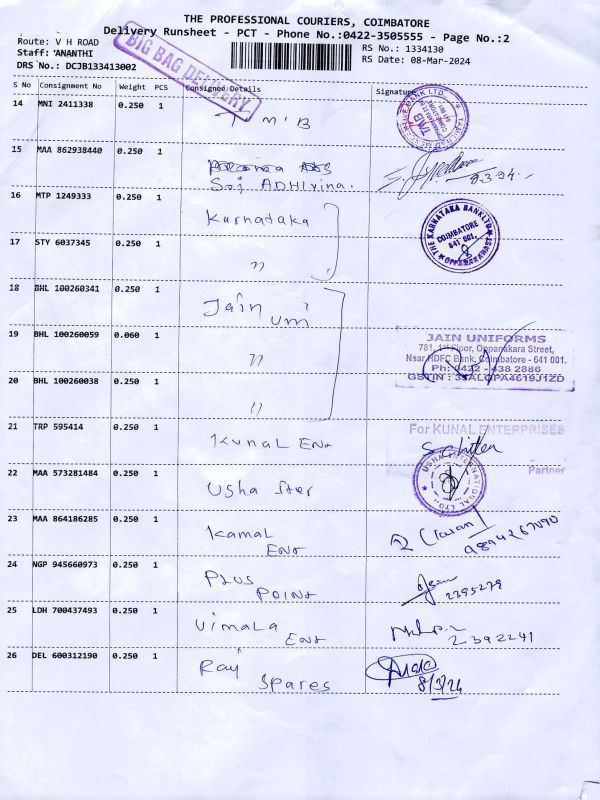 THE PROFESSIONAL COURIERS, COIMBATORE
Delivery Runsheet - PCT - Phone No.:0422-3505555 - Page No.:2
Route: V H ROAD
Staff: 'ANANTHI
DRS No.: DCJB133413002
RS No.: 1334130
RS Date: 08-Mar-2024
BIG BAG DELIVERY
S No Consignment No Weight PCS Consignee Details Signature
14 MNI 2411338 0.250 1 T M B
15 MAA 862938440 0.250 1
Sri ADHIvina.
8.3.24.
16 MTP 1249333 0.250 1 Karnataka
THE KARNATAKA BANK LTD
COIMBATORE
641 001.
17 STY 6037345 0.250 1 "
18 BHL 100260341 0.250 1 Jain
uni
19 BHL 100260059 0.060 1 "
JAIN UNIFORMS
781, 1st Floor, Oppanakara Street,
Near HDFC Bank, Coimbatore - 641 001.
Ph: 0422 - 438 2886
GSTIN : 33ALQPA4619J1ZD
20 BHL 100260038 0.250 1 "
21 TRP 595414 0.250 1 Kunal Ent
For KUNAL ENTERPRISES
Partner
22 MAA 573281484 0.250 1 Usha Inter
USHA INTERNATIONAL LTD.
23 MAA 864186285 0.250 1 Kamal
Ent
9894267090
24 NGP 945660973 0.250 1 Plus
Point
2395279
25 LDH 700437493 0.250 1 Vimala
Ent
2392241
26 DEL 600312190 0.250 1 Raj
Spares
8/3/24